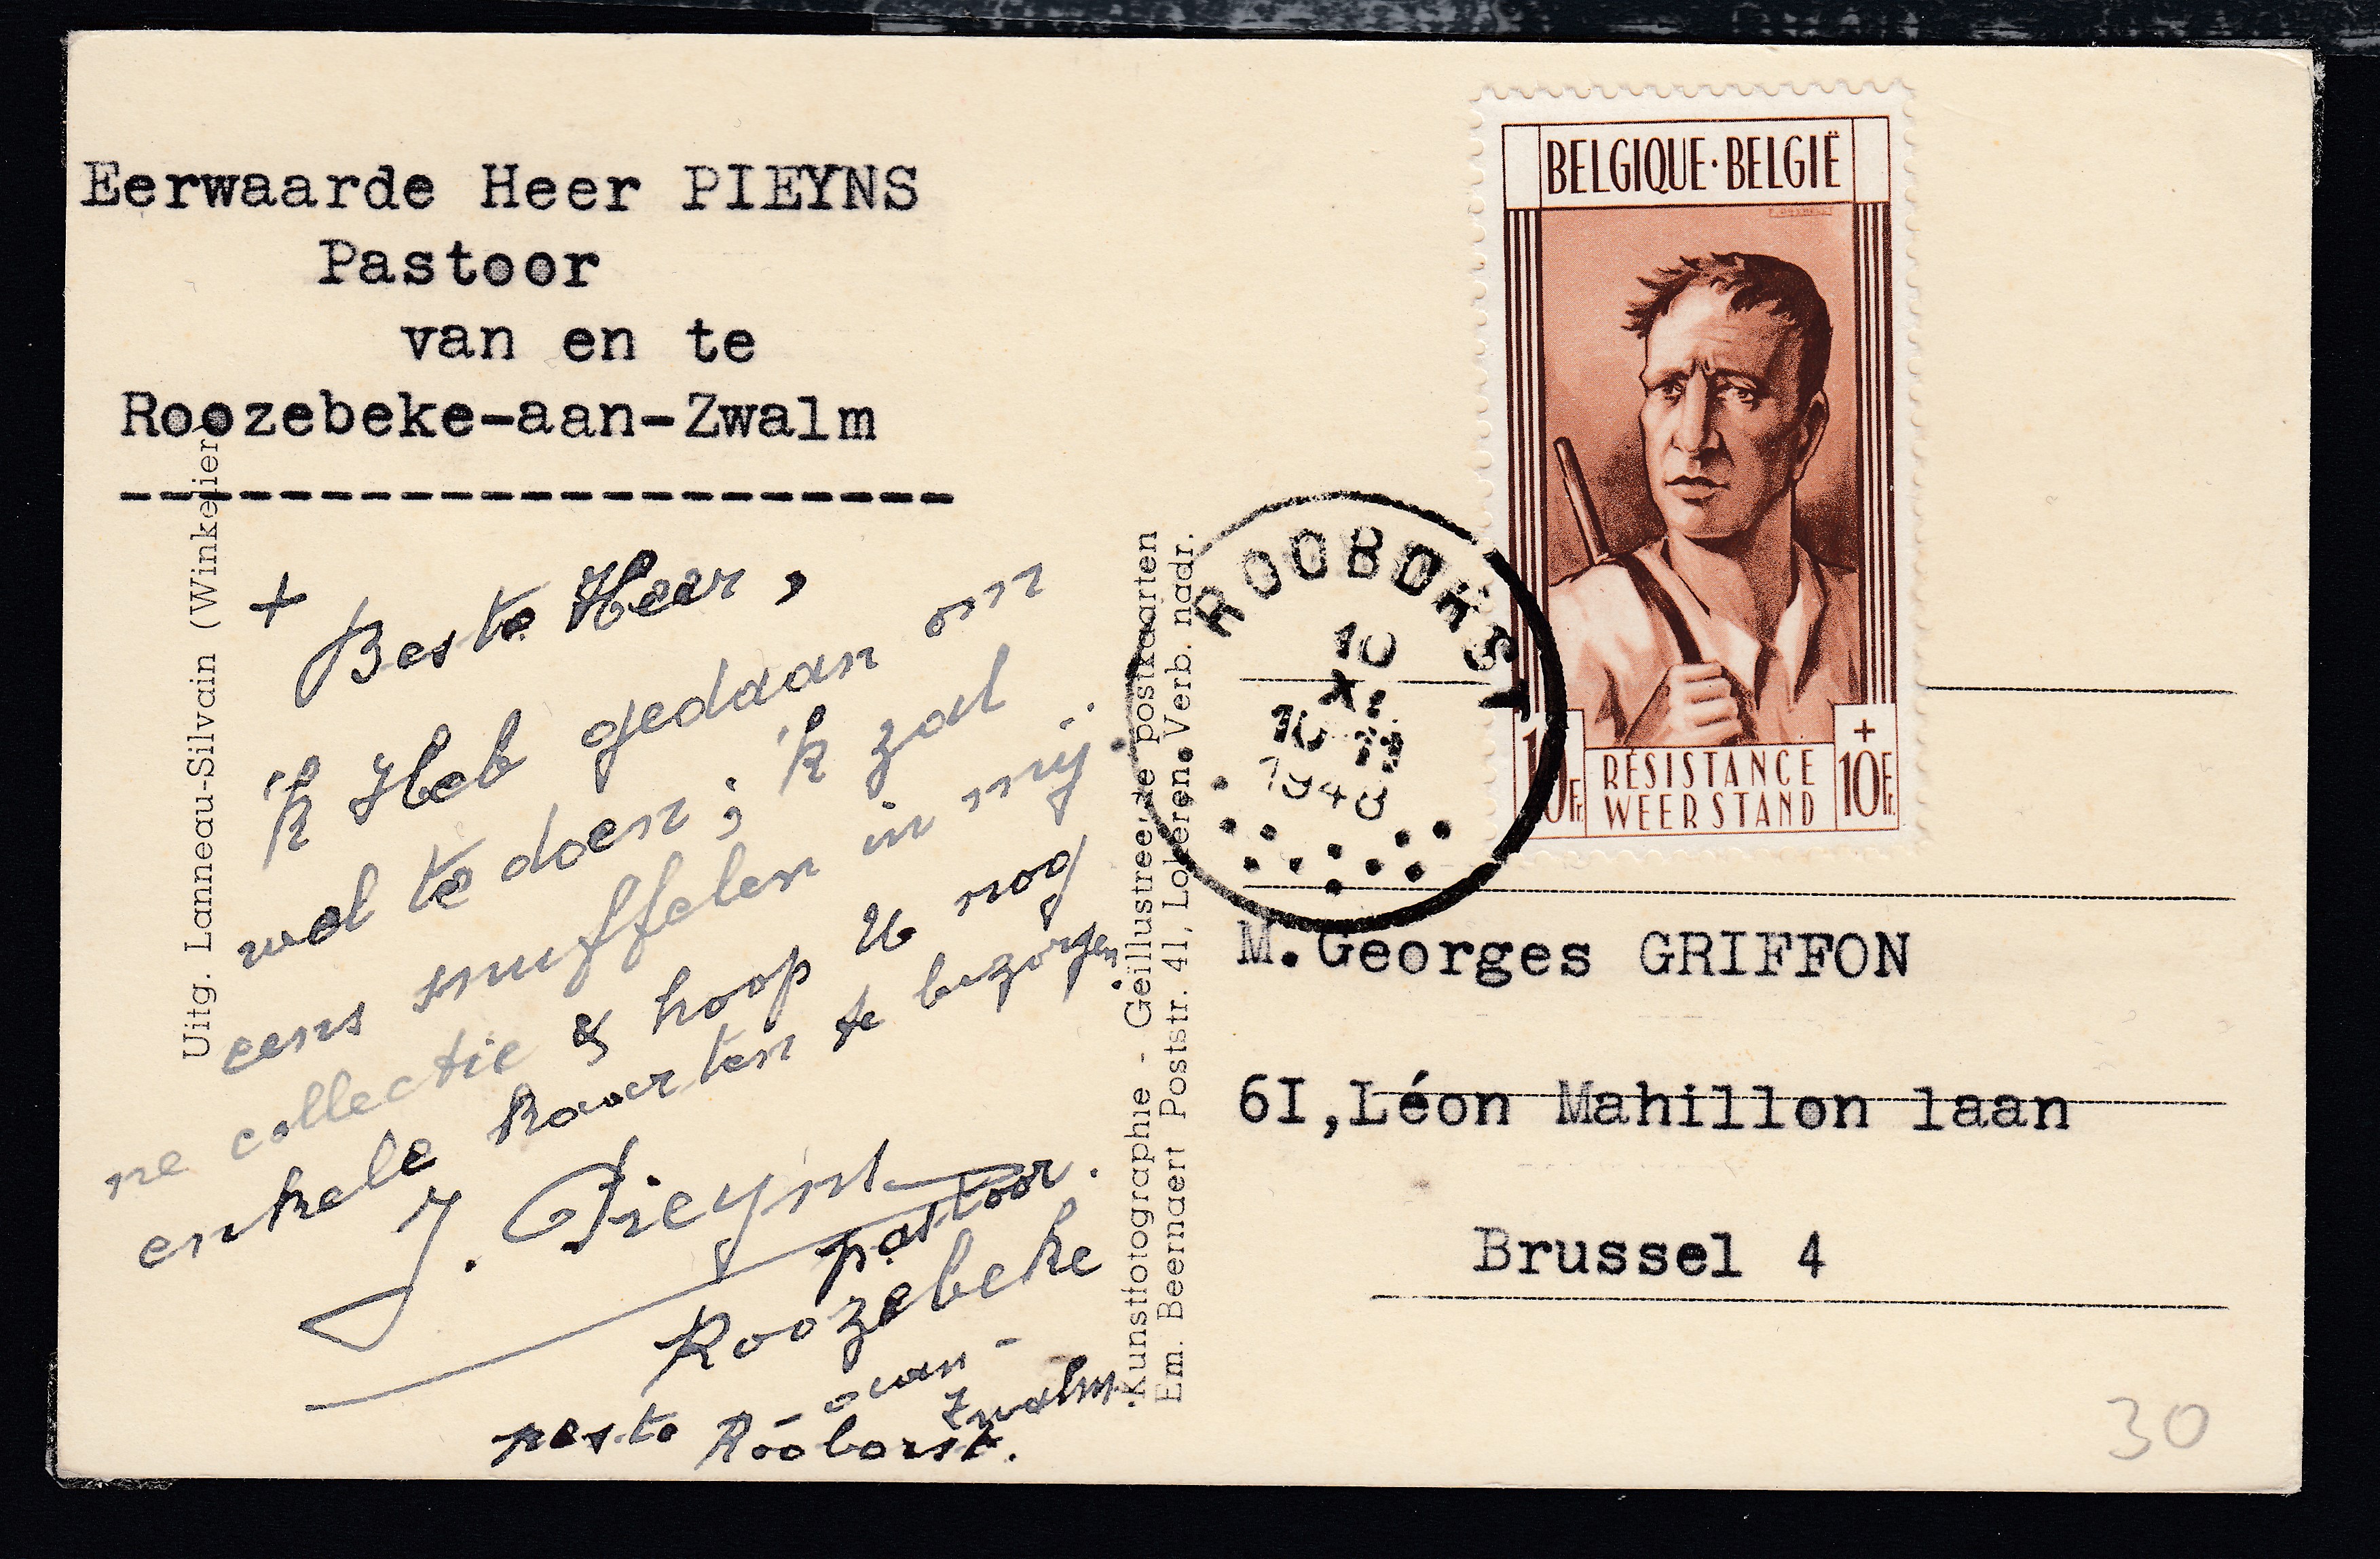 Eerwaarde Heer PIEYNS
Pastoor
van en te
Roozebeke-aan-Zwalm
+ Beste Heer,
'k Heb gedaan om
wel te doen; 'k zal
eens snuffelen in mij-
ne collectie & hoop U nog
enkele kaarten te bezorgen.
J. Pieyns
pastoor.
Roozebeke
- aan -
Zwalm.
poste Rooborst.
Uitg. Lanneau-Silvain (Winkelier)
Kunstfotographie - Geïllustreerde postkaarten
Em. Beernaert Poststr. 41, Lokeren. Verb. nadr.
BELGIQUE·BELGIË
10Fr.
RÉSISTANCE
WEERSTAND
+
10Fr.
ROOBORST
10
XI
10 11
1948
M.Georges GRIFFON
6I,Léon Mahillon laan
Brussel 4
30